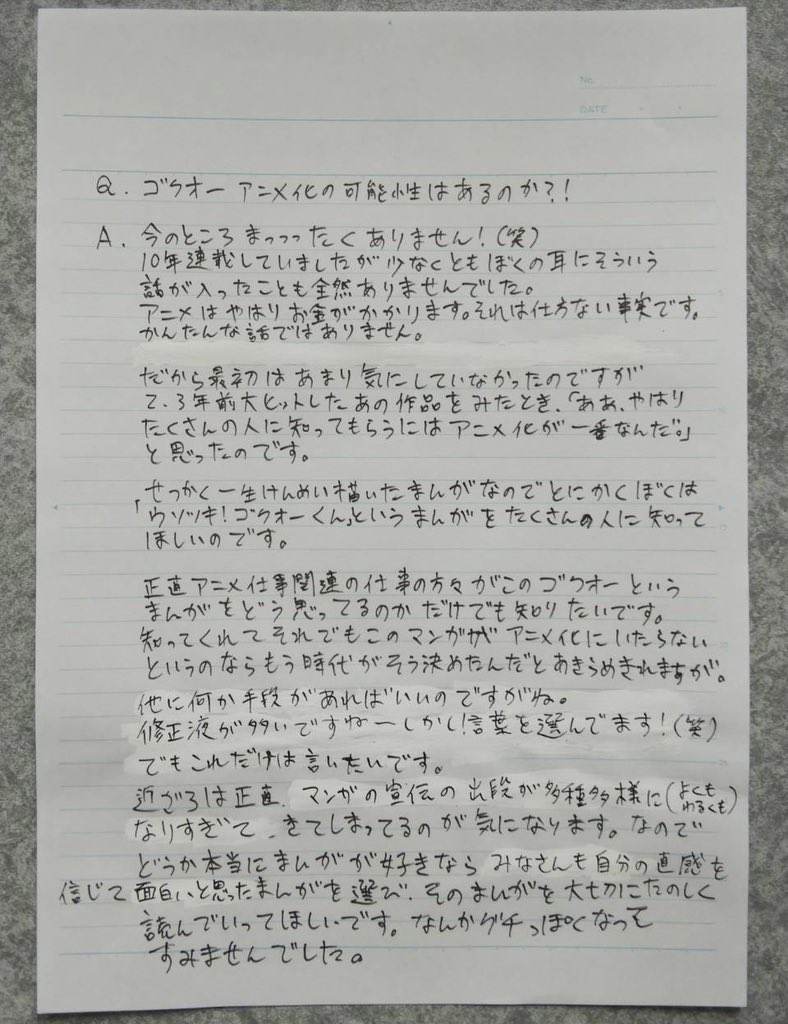 No.
DATE
Q. ゴクオー アニメ化の可能性はあるのか?!
A. 今のところ まっっったく ありません!(笑)
10年連載していましたが少なくともぼくの耳にそういう
話が入ったことも全然ありませんでした。
アニメはやはりお金がかかります。それは仕方ない事実です。
かんたんな話ではありません。
だから最初はあまり気にしていなかったのですが
2、3年前大ヒットしたあの作品をみたとき、「ああ、やはり
たくさんの人に知ってもらうにはアニメ化が一番なんだ。」
と思ったのです。
せっかく一生けんめい描いたまんがなのでとにかくぼくは
「ウソツキ!ゴクオーくん」というまんがをたくさんの人に知って
ほしいのです。
正直アニメ仕事関連の仕事の方々がこのゴクオーという
まんがをどう思ってるのかだけでも知りたいです。
知ってくれてそれでもこのマンガがアニメ化にいたらない
というのならもう時代がそう決めたんだとあきらめきれますが。
他に何か手段があればいいのですがね。
修正液が多いですね〜しかし!言葉を選んでます!(笑)
でもこれだけは言いたいです。
近ごろは正直、マンガの宣伝の出段が多種多様に(よくも わるくも)
なりすぎて、きてしまってるのが気になります。なので
どうか本当にまんがが好きなら みなさんも自分の直感を
信じて面白いと思ったまんがを選び、そのまんがを大切にたのしく
読んでいってほしいです。なんかグチっぽくなって
すみませんでした。